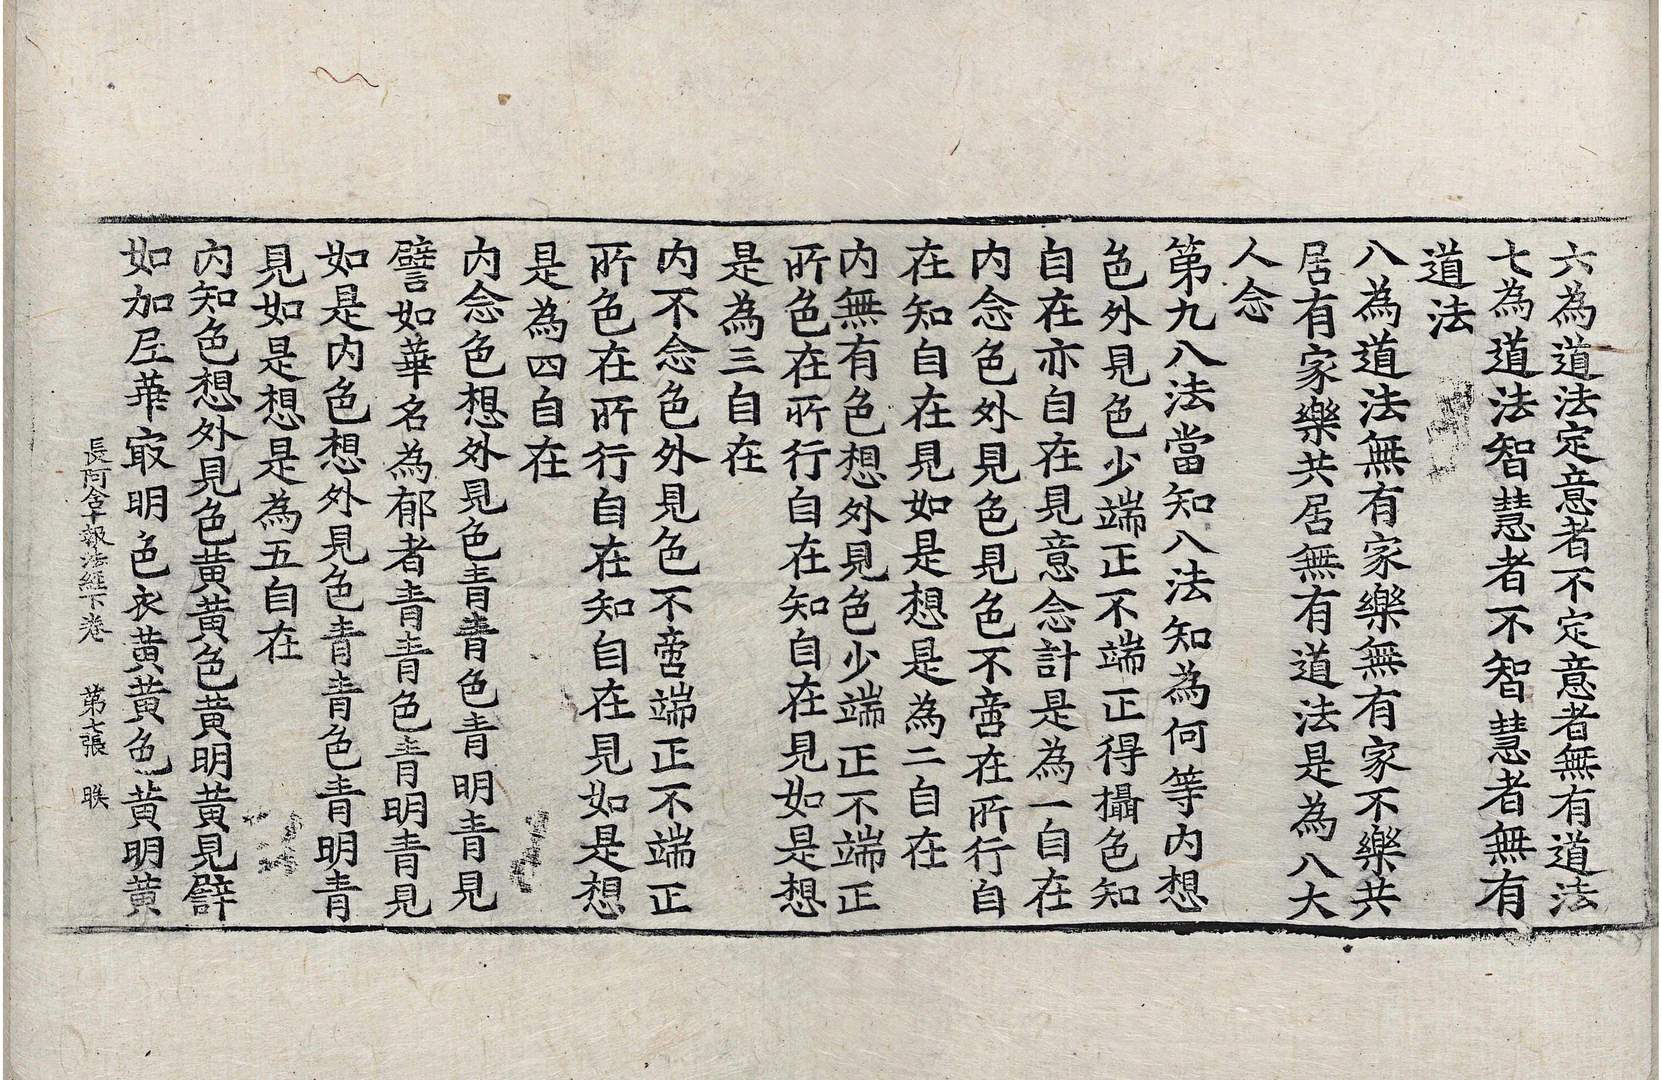 六為道法定意者不定意者無有道法
七為道法智慧者不智慧者無有
道法
八為道法無有家樂無有家不樂共
居有家樂共居無有道法是為八大
人念
第九八法當知八法知為何等內想
色外見色少端正不端正得攝色知
自在亦自在見意念計是為一自在
內念色外見色見色不啻在所行自
在知自在見如是想是為二自在
內無有色想外見色少端正不端正
所色在所行自在知自在見如是想
是為三自在
內不念色外見色不啻端正不端正
所色在所行自在知自在見如是想
是為四自在
內念色想外見色青青色青明青見
譬如華名為郁者青青色青明青見
如是內色想外見色青青色青明青
見如是想是為五自在
內知色想外見色黃黃色黃明黃見譬
如加𡱝華㝡明色衣黃黃色黃明黃
長阿含十報法經下卷 第七張 㬋